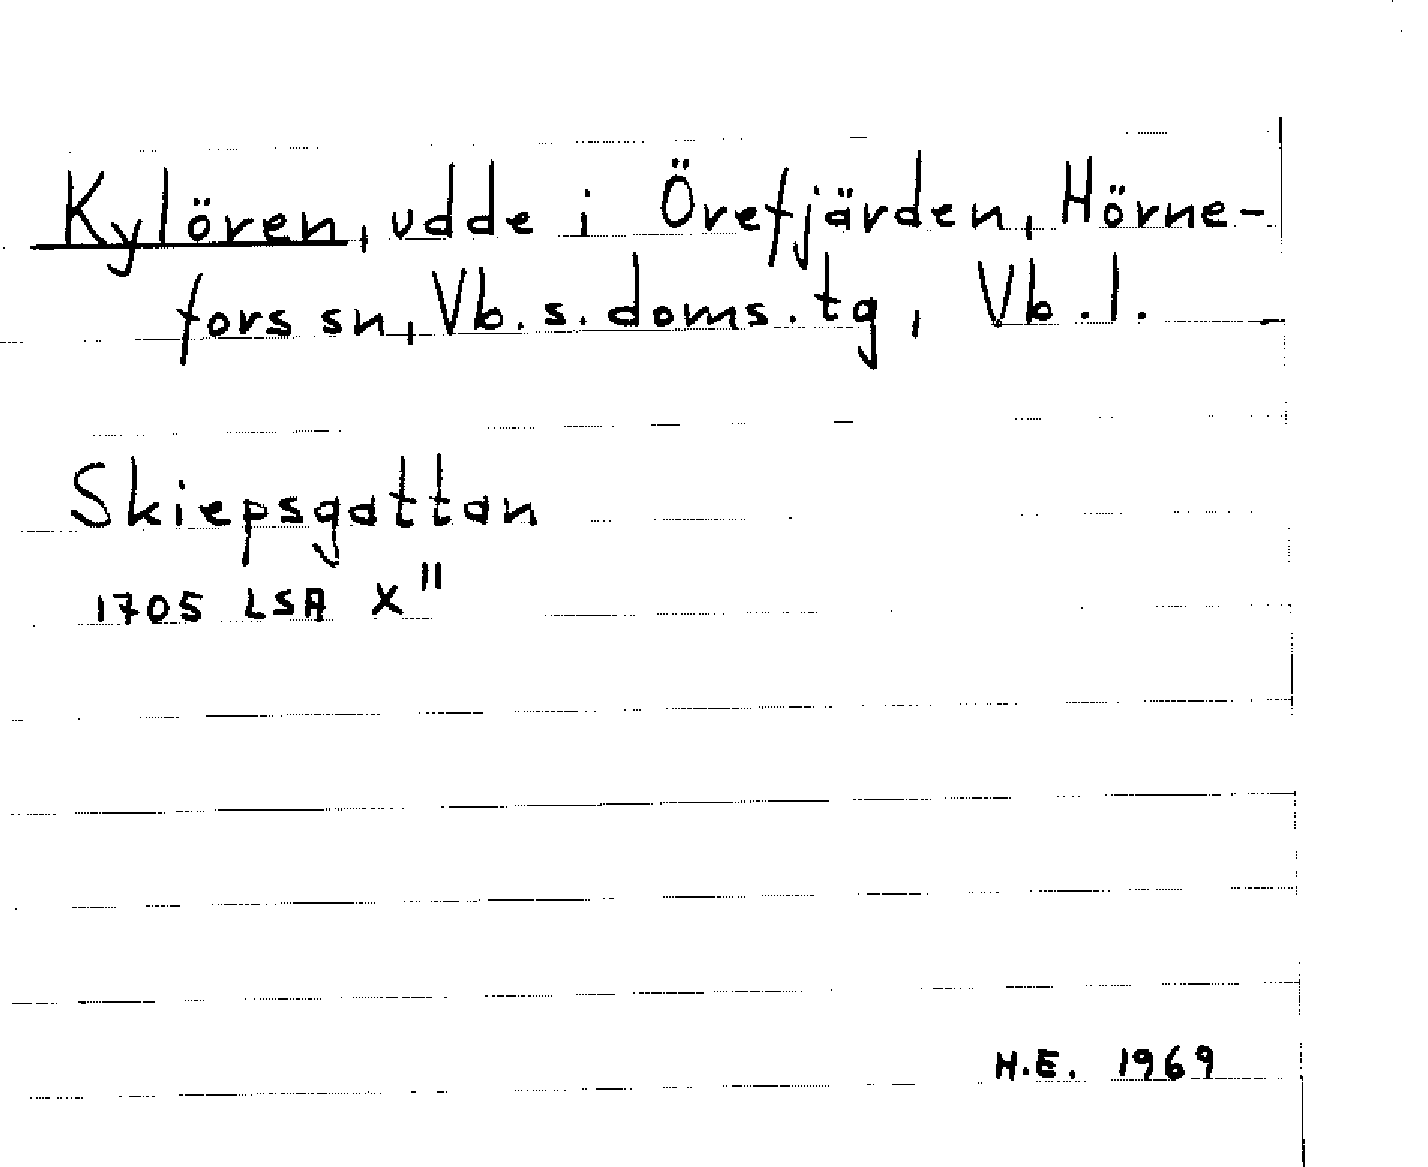 Kylören, udde i Örefjärden, Hörne-
fors sn, Vb. s. doms. tg, Vb. l.
Skiepsgattan
1705 LSA X"
H.E. 1969